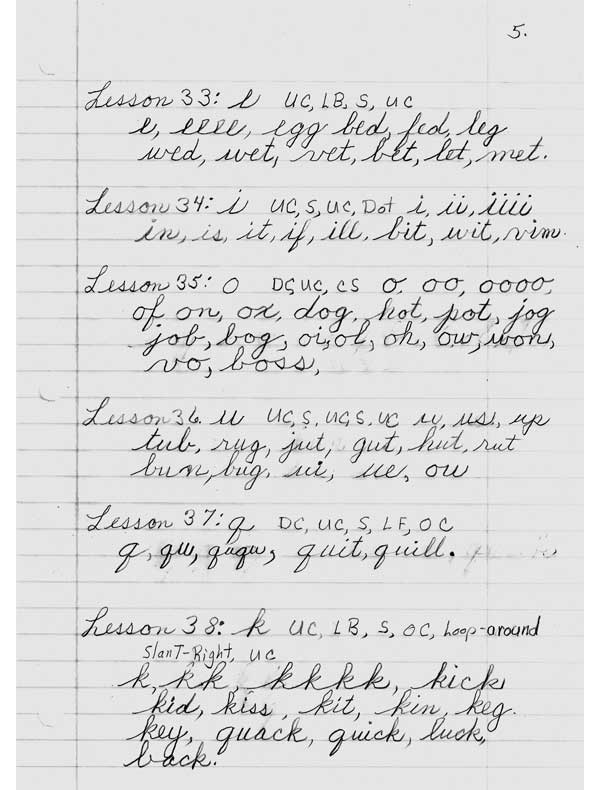 5.
Lesson 33: e UC, LB, S, UC
e, eeee, egg bed, fed, leg
wed, wet, vet, bet, let, met.
Lesson 34: i UC, S, UC, Dot i, ii, iiii
in, is, it, if, ill, bit, wit, vim.
Lesson 35: O DC, UC, CS O, OO, OOOO,
of on, ox, dog, hot, pot, jog
job, bog, oi, ol, oh, ow, won,
vo, boss,
Lesson 36. u UC, S, UC, S, UC u, us, up
tub, rug, jut, gut, hut, rut
bun, bug, ui, ue, ou
Lesson 37: q DC, UC, S, LF, OC
q, qu, ququ, quit, quill.
Lesson 38: k UC, LB, S, OC, Loop-around
SlanT-Right, UC
k, kk kkkk, kick
kid, kiss, kit, kin, keg.
key, quack, quick, luck,
back.